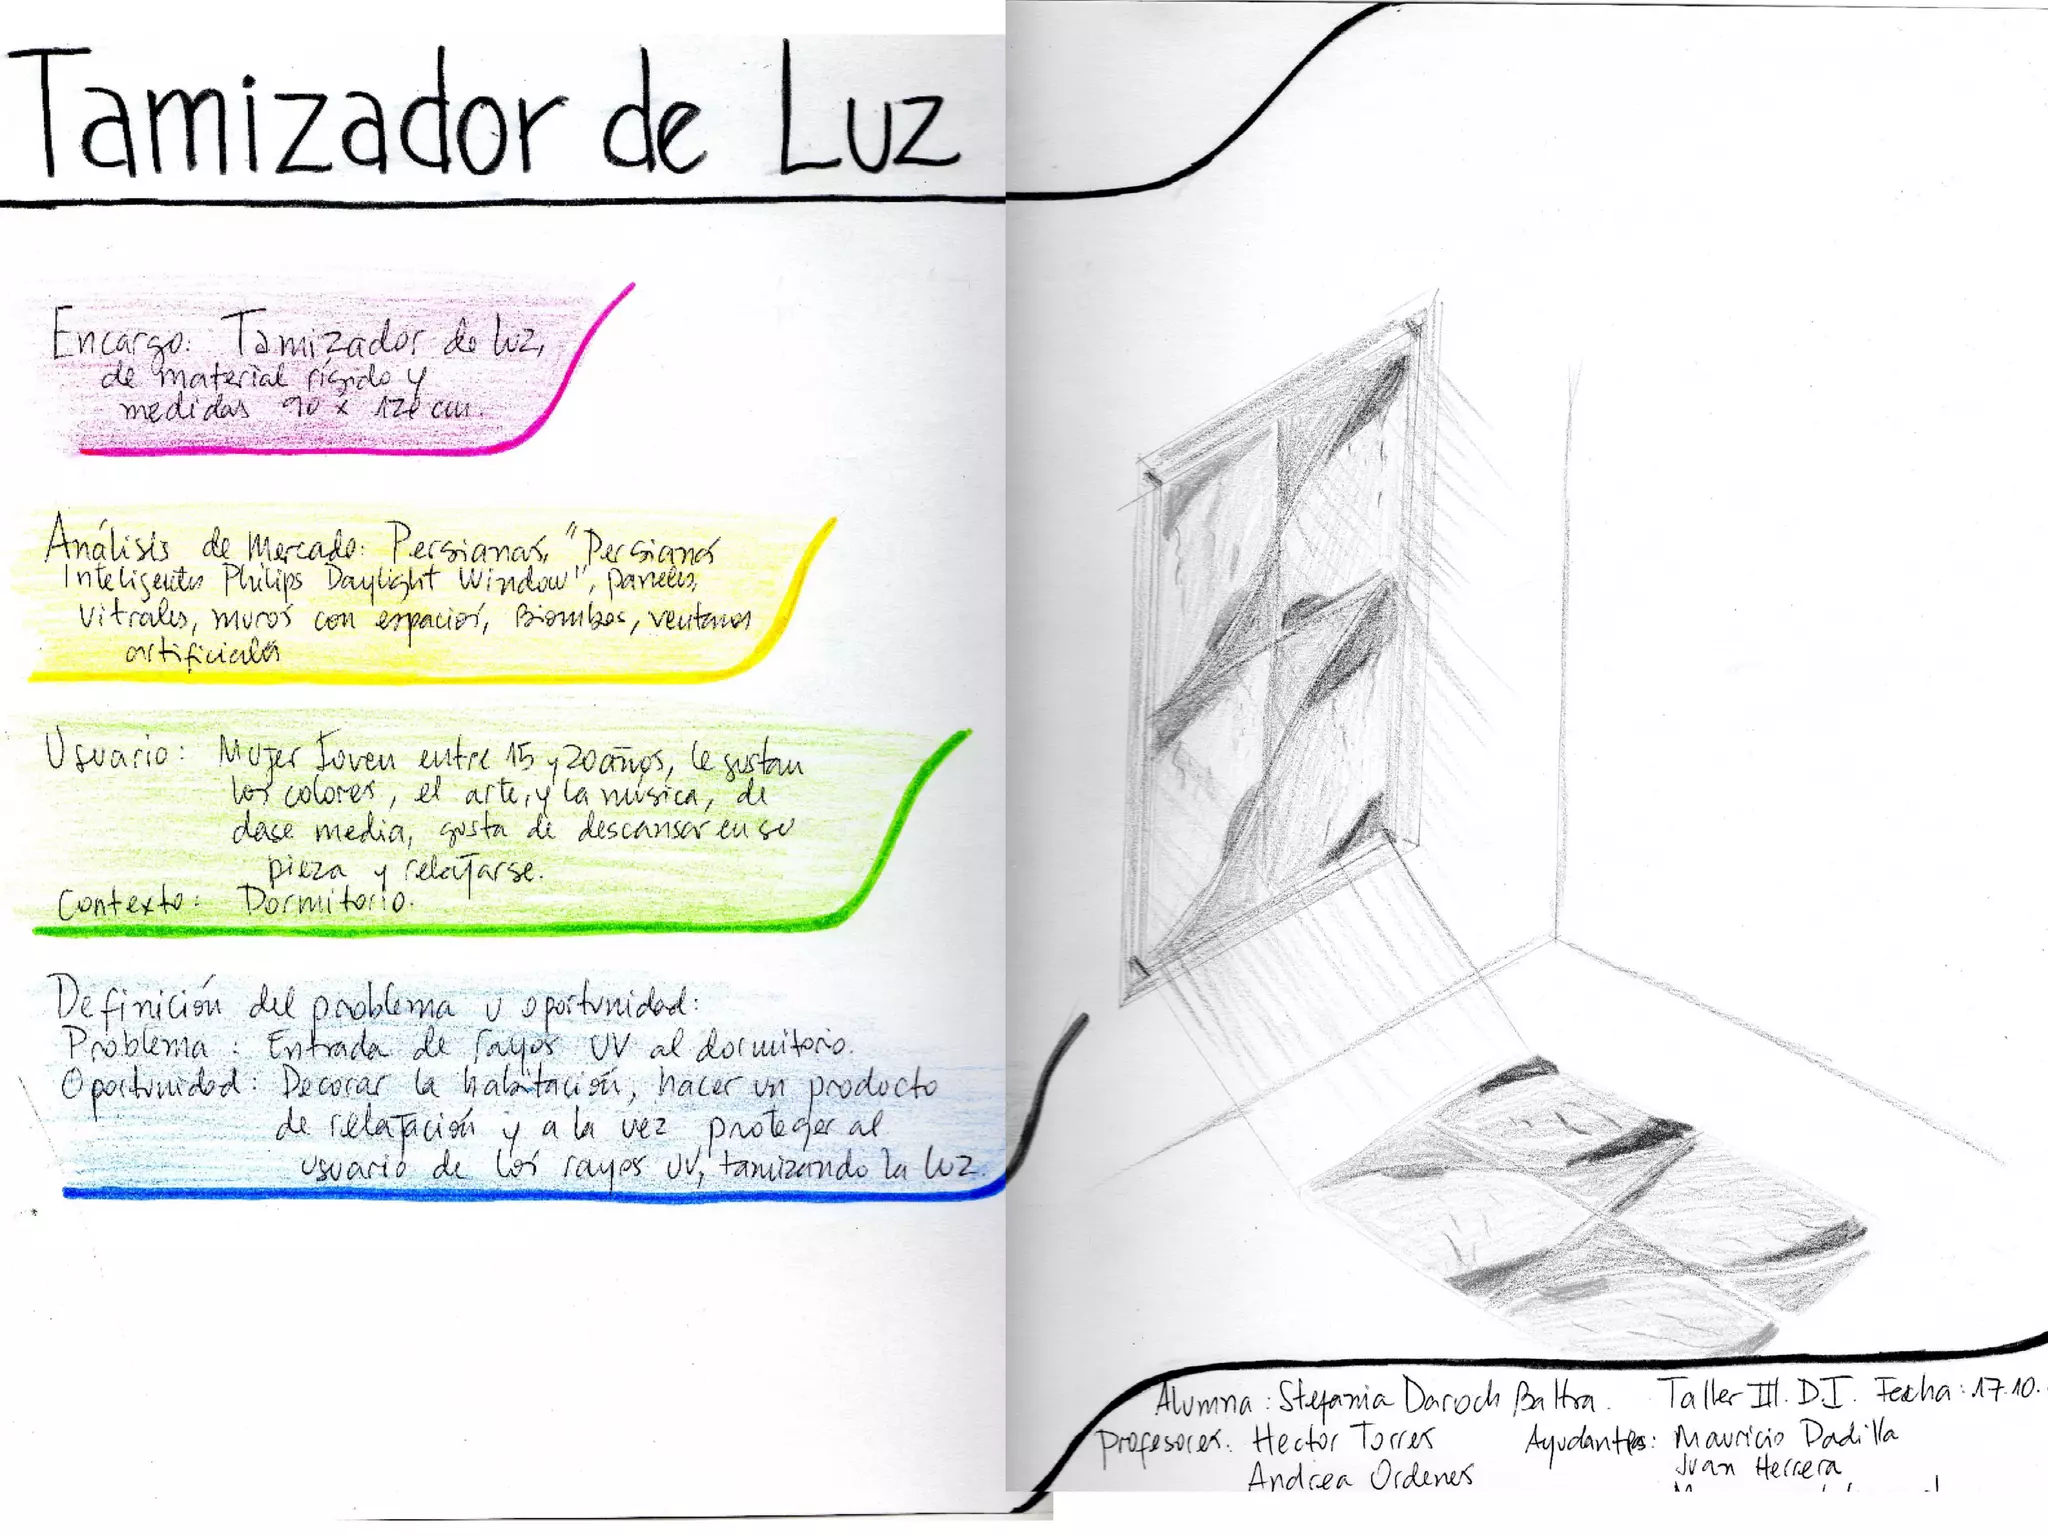 Tamizador de Luz
Encargo: Tamizador de luz,
de material rígido y
medidas 90 x 120 cm.
Análisis de Mercado: Persianas, "Persianas
Inteligentes Philips Daylight Window", paneles,
vitrales, muros con espacios, Biombos, ventanas
artificiales
Usuario: Mujer Joven entre 15 y 20 años, le gustan
los colores, el arte, y la música, de
clase media, gusta de descansar en su
pieza y relajarse.
Contexto: Dormitorio.
Definición del problema u oportunidad:
Problema: Entrada de rayos UV al dormitorio.
Oportunidad: Decorar la habitación, hacer un producto
de relajación y a la vez proteger al
usuario de los rayos UV, tamizando la luz.
Alumna: Stefania Daroch Baltra. Taller III. D.I. Fecha: 17.10.
Profesores: Hector Torres Ayudantes: Mauricio Padilla
Andrea Ordenes Juan Herrera